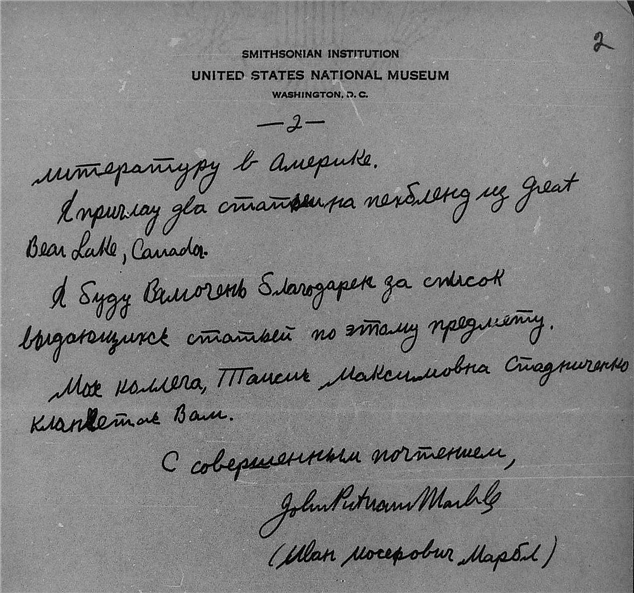 2
SMITHSONIAN INSTITUTION
UNITED STATES NATIONAL MUSEUM
WASHINGTON, D. C.
—2—
литературу в Америке.
Я пришлау два статьи на пехбленд из Great
Bear Lake, Canada.
Я буду Вам очень благодарен за список
выдающихся статьей по этому предмету.
Моя коллега, Таисия Максимовна Стадниченко
кланяется Вам.
С совершенным почтением,
John Putnam Marble
(Иван Иосерович Марбл)